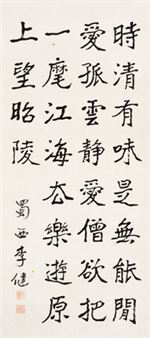 時清有味是無能閒
愛孤雲靜愛僧欲把
一麾江海去樂遊原
上望昭陵
蜀西李健